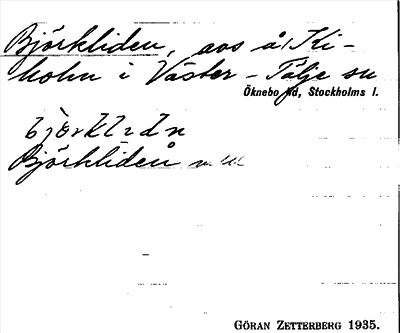 Björkliden, avs å Ki-
holm i Väster-Tälje sn
Öknebo hd, Stockholms l.
Björkliden
GÖRAN ZETTERBERG 1935.